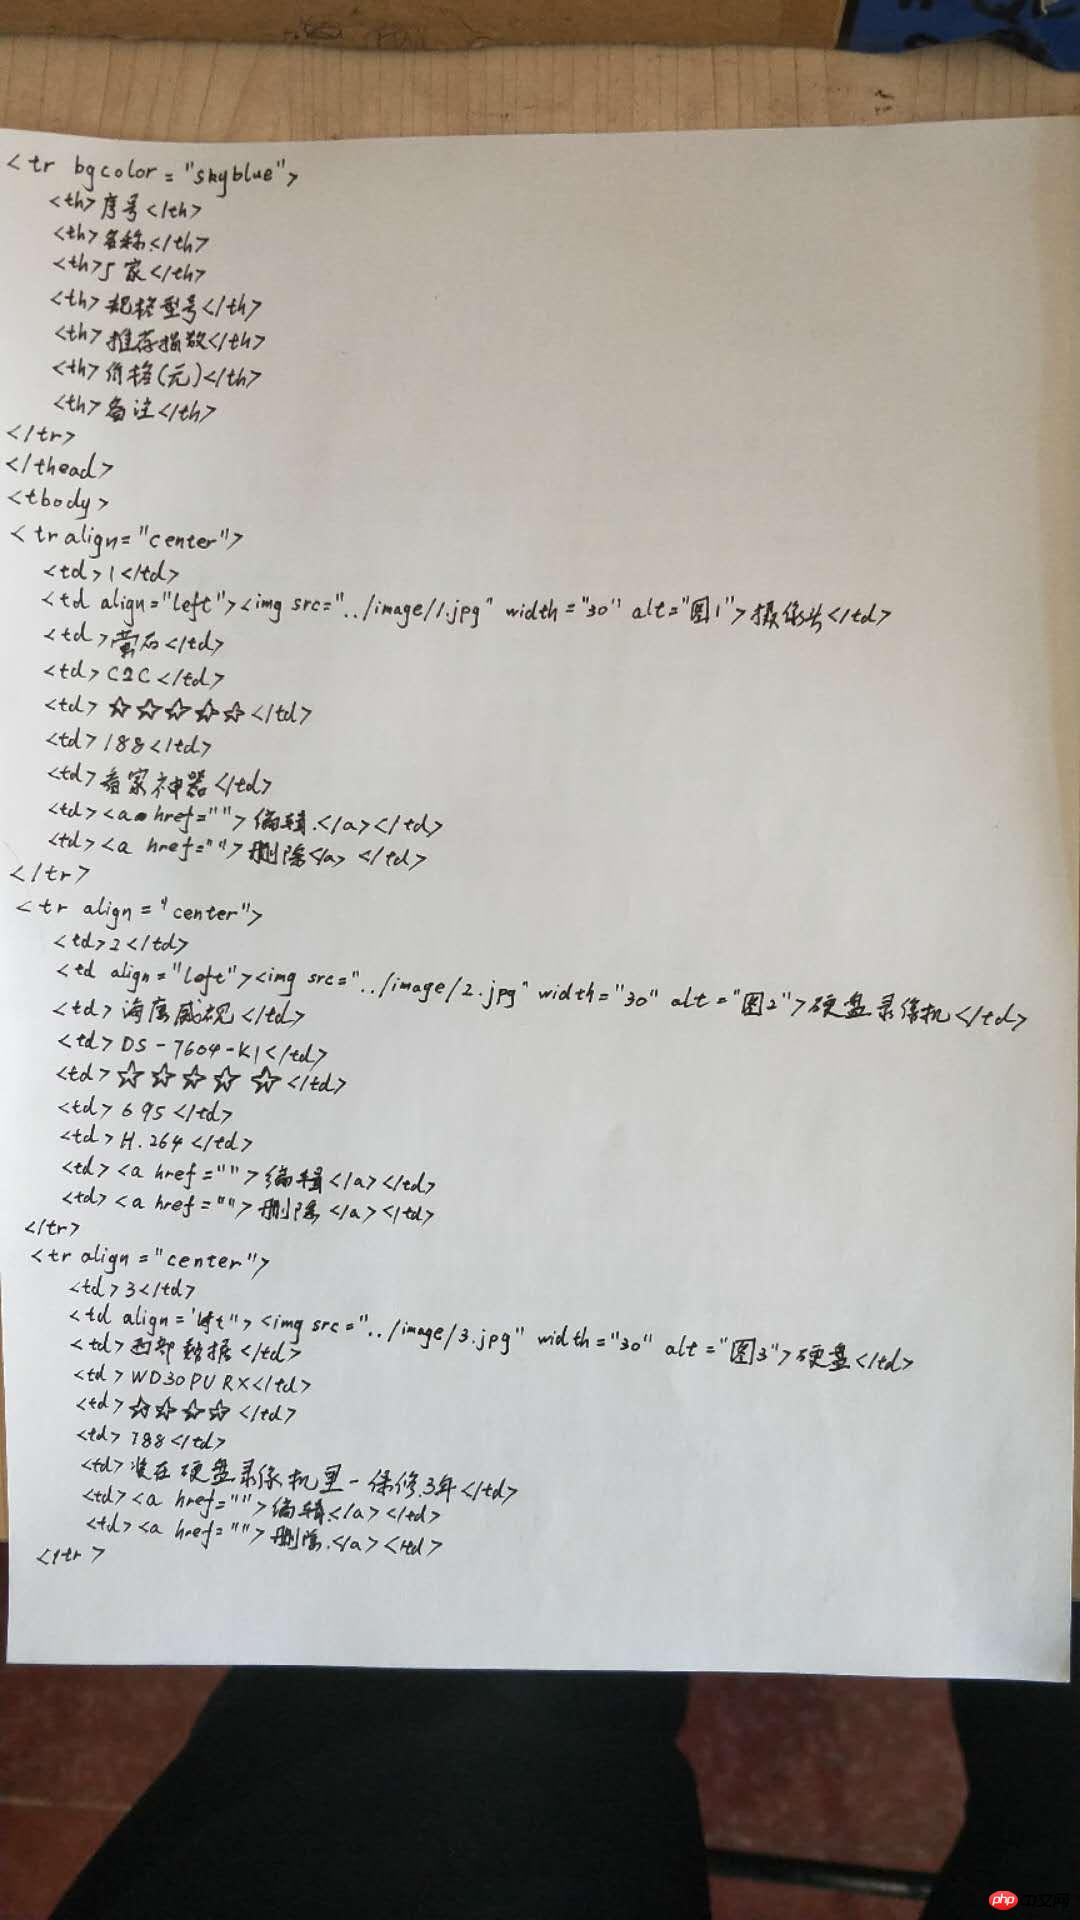 <tr bgcolor="skyblue">
<th>序号</th>
<th>名称</th>
<th>厂家</th>
<th>规格型号</th>
<th>推荐指数</th>
<th>价格(元)</th>
<th>备注</th>
</tr>
</thead>
<tbody>
<tr align="center">
<td>1</td>
<td align="left"><img src="../image/1.jpg" width="30" alt="图1">摄像头</td>
<td>萤石</td>
<td>C2C</td>
<td>☆☆☆☆☆</td>
<td>188</td>
<td>看家神器</td>
<td><a href="">编辑</a></td>
<td><a href="">删除</a></td>
</tr>
<tr align="center">
<td>2</td>
<td align="left"><img src="../image/2.jpg" width="30" alt="图2">硬盘录像机</td>
<td>海康威视</td>
<td>DS-7604-K1</td>
<td>☆☆☆☆☆</td>
<td>695</td>
<td>H.264</td>
<td><a href="">编辑</a></td>
<td><a href="">删除</a></td>
</tr>
<tr align="center">
<td>3</td>
<td align='left"><img src="../image/3.jpg" width="30" alt="图3">硬盘</td>
<td>西部数据</td>
<td>WD30PURX</td>
<td>☆☆☆☆</td>
<td>788</td>
<td>装在硬盘录像机里-保修3年</td>
<td><a href="">编辑</a></td>
<td><a href="">删除</a></td>
</tr>
php中文网